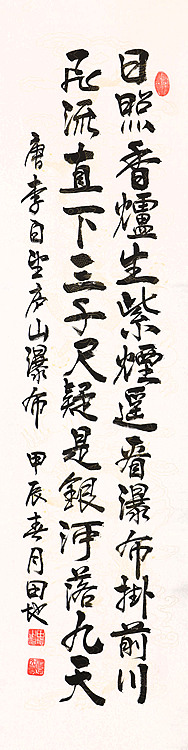 日照香爐生紫煙遥看瀑布掛前川
飛流直下三千尺疑是銀河落九天
唐李白望庐山瀑布 甲辰春月田地